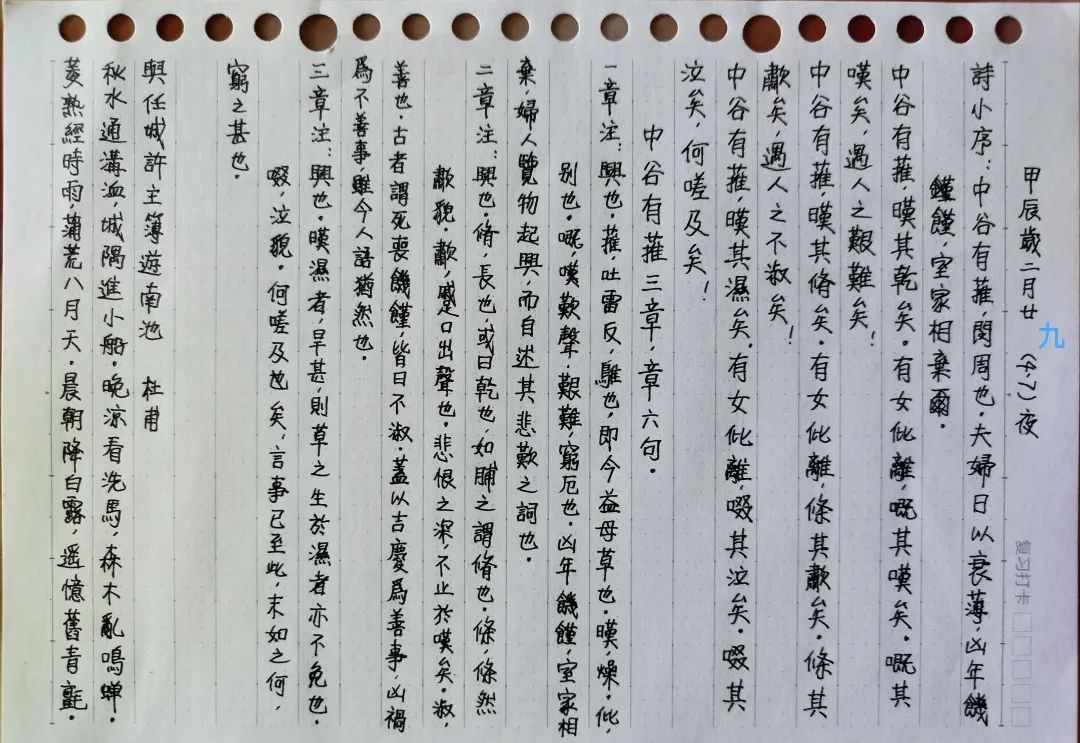 甲辰歲二月廿九(4.7)夜
詩小序:中谷有蓷,閔周也。夫婦日以衰薄,凶年饑
饉饉,室家相棄爾。
中谷有蓷,暵其乾矣。有女仳離,嘅其嘆矣。嘅其
嘆矣,遇人之艱難矣!
中谷有蓷,暵其脩矣。有女仳離,條其歗矣。條其
歗矣,遇人之不淑矣!
中谷有蓷,暵其濕矣。有女仳離,啜其泣矣。啜其
泣矣,何嗟及矣!
中谷有蓷三章,章六句。
一章注:興也。蓷,吐雷反,鵻也,即今益母草也。暵,燥。仳,
別也。嘅,嘆歎聲。艱難,窮厄也。凶年饑饉,室家相
棄,婦人覽物起興,而自述其悲歎之詞也。
二章注:興也。脩,長也,或曰乾也,如脯之謂脩也。條,條然
歗貌。歗,蹙口出聲也。悲恨之深,不止於嘆矣。淑,
善也。古者謂死喪饑饉皆曰不淑。蓋以吉慶爲善事,凶禍
爲不善事,雖今人語猶然也。
三章注:興也。暵濕者,旱甚,則草之生於濕者亦不免也。
啜,泣貌。何嗟及也矣,言事已至此,末如之何,
窮之甚也。
與任城許主簿遊南池 杜甫
秋水通溝洫,城隅進小船。晚涼看洗馬,森木亂鳴蟬。
菱熟經時雨,蒲荒八月天。晨朝降白露,遥憶舊青氈。
复习打卡